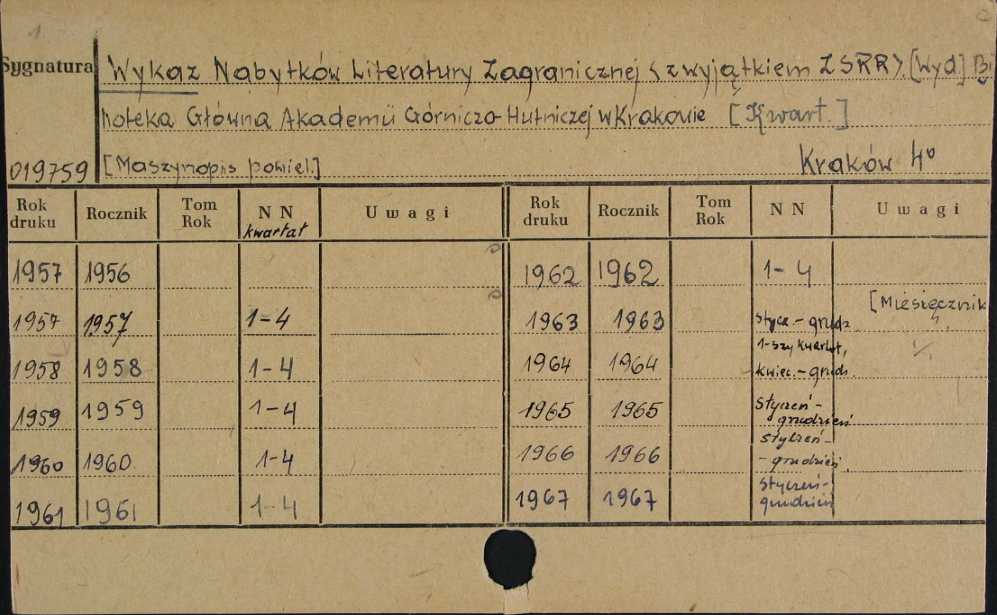 Sygnatura Wykaz Nabytków Literatury Zagranicznej (z wyjątkiem ZSRR). [Wyd] Bi
hoteka Główna Akademii Górniczo-Hutniczej w Krakowie [Kwart.]
019759 [Maszynopis powiel.] Kraków 4°
Rok druku Rocznik Tom Rok NN kwartał Uwagi Rok druku Rocznik Tom Rok NN Uwagi
1957 1956 1962 1962 1-4
1957 1957 1-4 1963 1963 stycz.-grudz. [Miesięcznik
1958 1958 1-4 1964 1964 1-szy kwartał, kwiec.-grudz.
1959 1959 1-4 1965 1965 styczeń-grudzień
1960 1960 1-4 1966 1966 styczeń--grudzień.
1961 1961 1-4 1967 1967 styczeń-grudzień